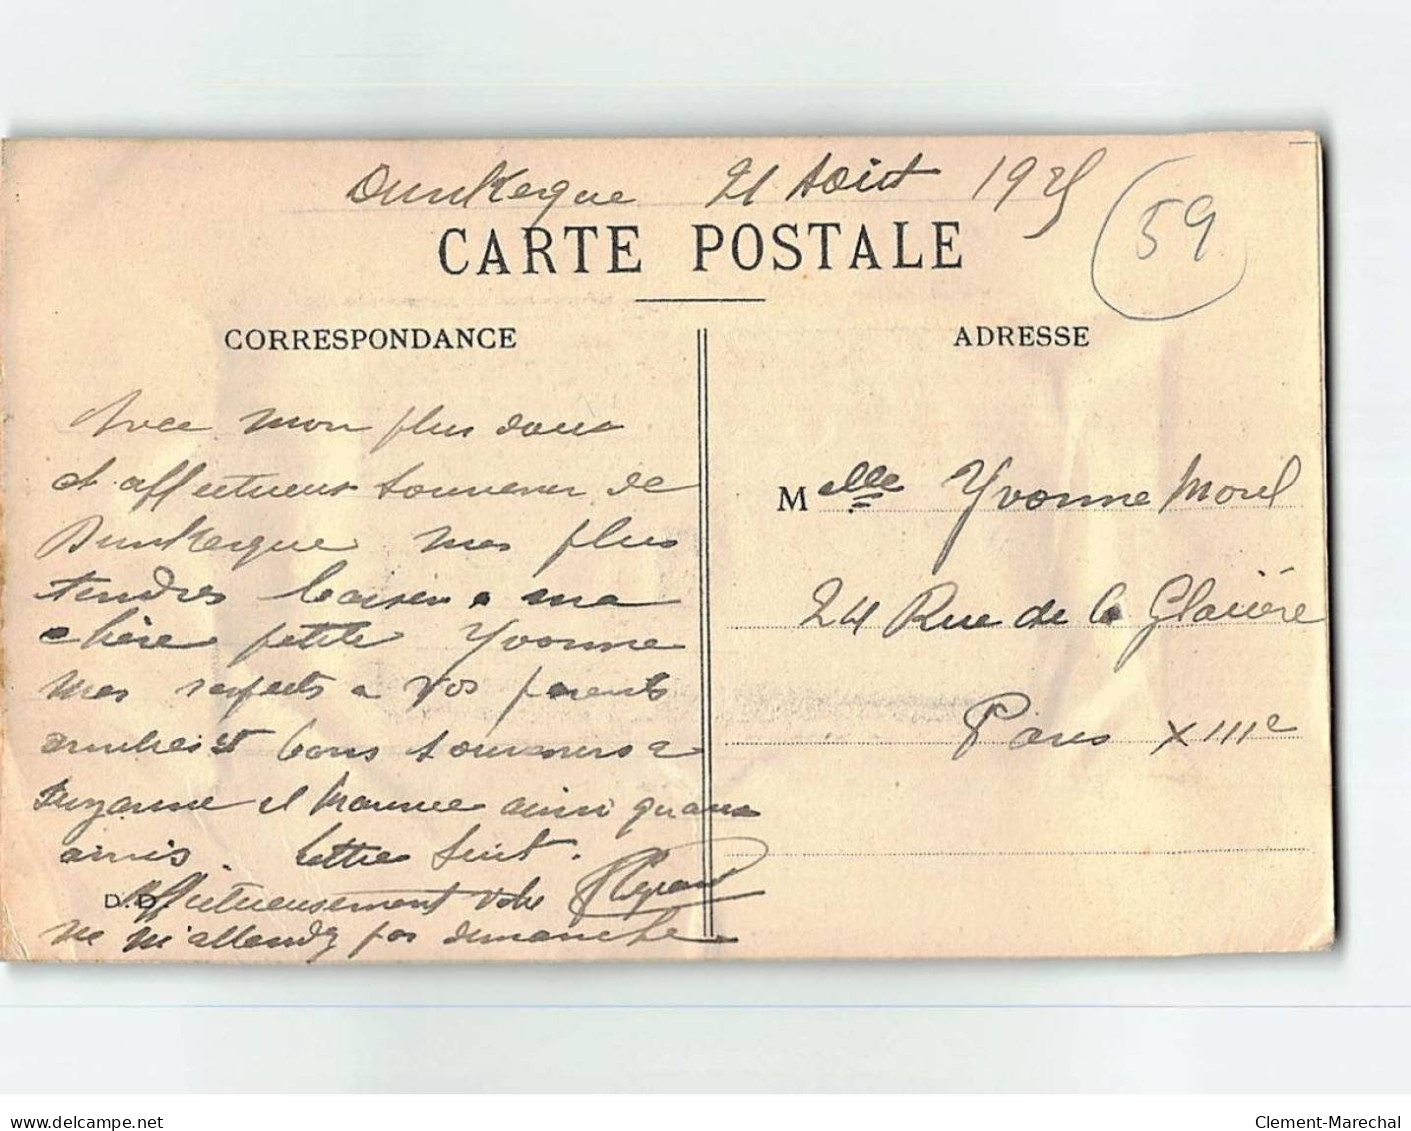 Dunkerque 21 Août 1925
59
CARTE POSTALE
CORRESPONDANCE
ADRESSE
Avec mon plus doux
et affectueux souvenir de
Dunkerque mes plus
tendres baisers a ma
chère petite Yvonne
mes respects a vos parents
amitiés et bons souvenirs a
Suzanne et Maurice ainsi qu'aux
amis. lettre suit.
D.D. Affectueusement votre
ne m'attendez pas dimanche
Melle Yvonne Morel
24 Rue de la Glacière
Paris XIIIe
www.delcampe.net
Clement-Marechal